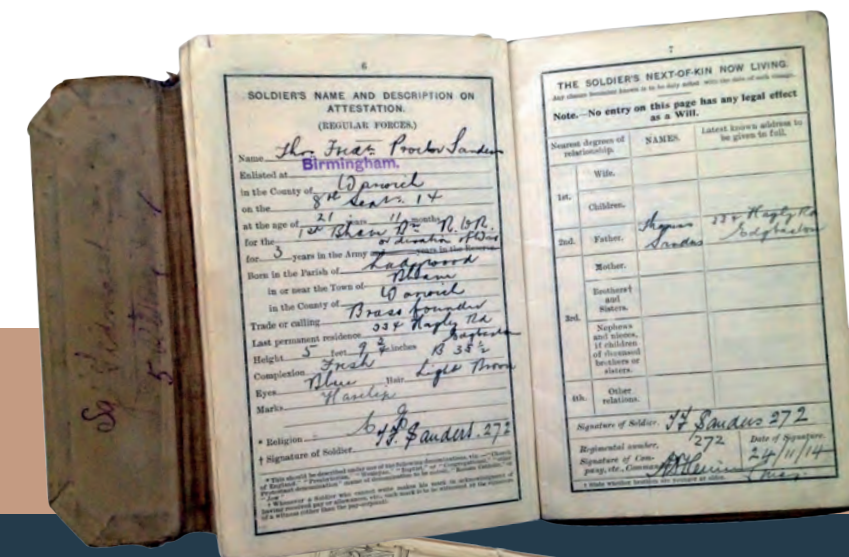 6
SOLDIER'S NAME AND DESCRIPTION ON
ATTESTATION.
(REGULAR FORCES.)
Name Thos Fredk Proctor Sanders
Enlisted at Birmingham.
in the County of Warwick
on the 8th Sept. 14
at the age of 21 years 11 months
for the 1st Bham Bn R.W.R.
for 3 years in the Army or duration of War years in the Reserve
Born in the Parish of Ladywood
in or near the Town of Bham
in the County of Warwick
Trade or calling Brass founder
Last permanent residence 334 Hagley Rd
Edgbaston
Height 5 feet 9 3/4 inches B 35 1/2
Complexion Fresh
Eyes Blue Hair Light Brown
Marks Harelip
* Religion
† Signature of Soldier. T.F. Sanders. 272
7
THE SOLDIER'S NEXT-OF-KIN NOW LIVING.
Note.—No entry on this page has any legal effect
as a Will.
Nearest degrees of relationship. NAMES. Latest known address to be given in full.
1st. Wife.
Children.
2nd. Father. Thomas Sanders 334 Hagley Rd Edgbaston
Mother.
3rd. Brothers† and Sisters.
Nephews and nieces, if children of deceased brothers or sisters.
4th. Other relations.
Signature of Soldier. T F Sanders 272
Regimental number, 272 Date of Signature.
Signature of Company, etc., Commander 24/11/14